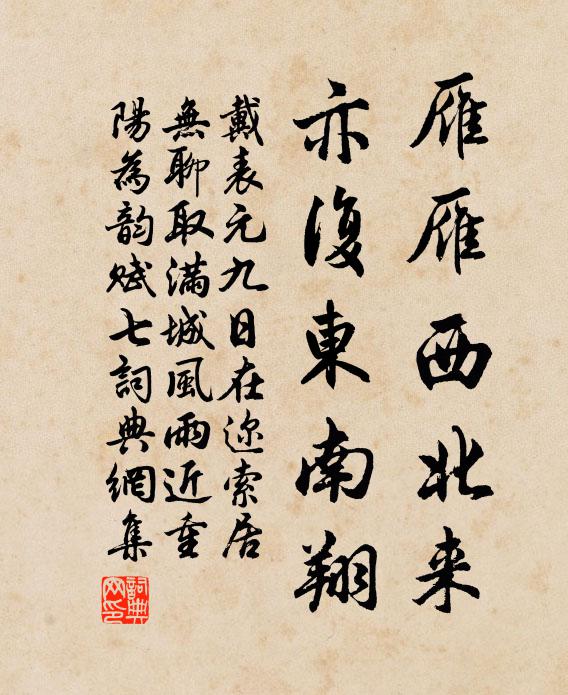 雁雁西北来
亦復東南翔
戴表元九日在迩索居
無聊取滿城風雨近重
陽為韵赋七詞典網集
詞典
网印